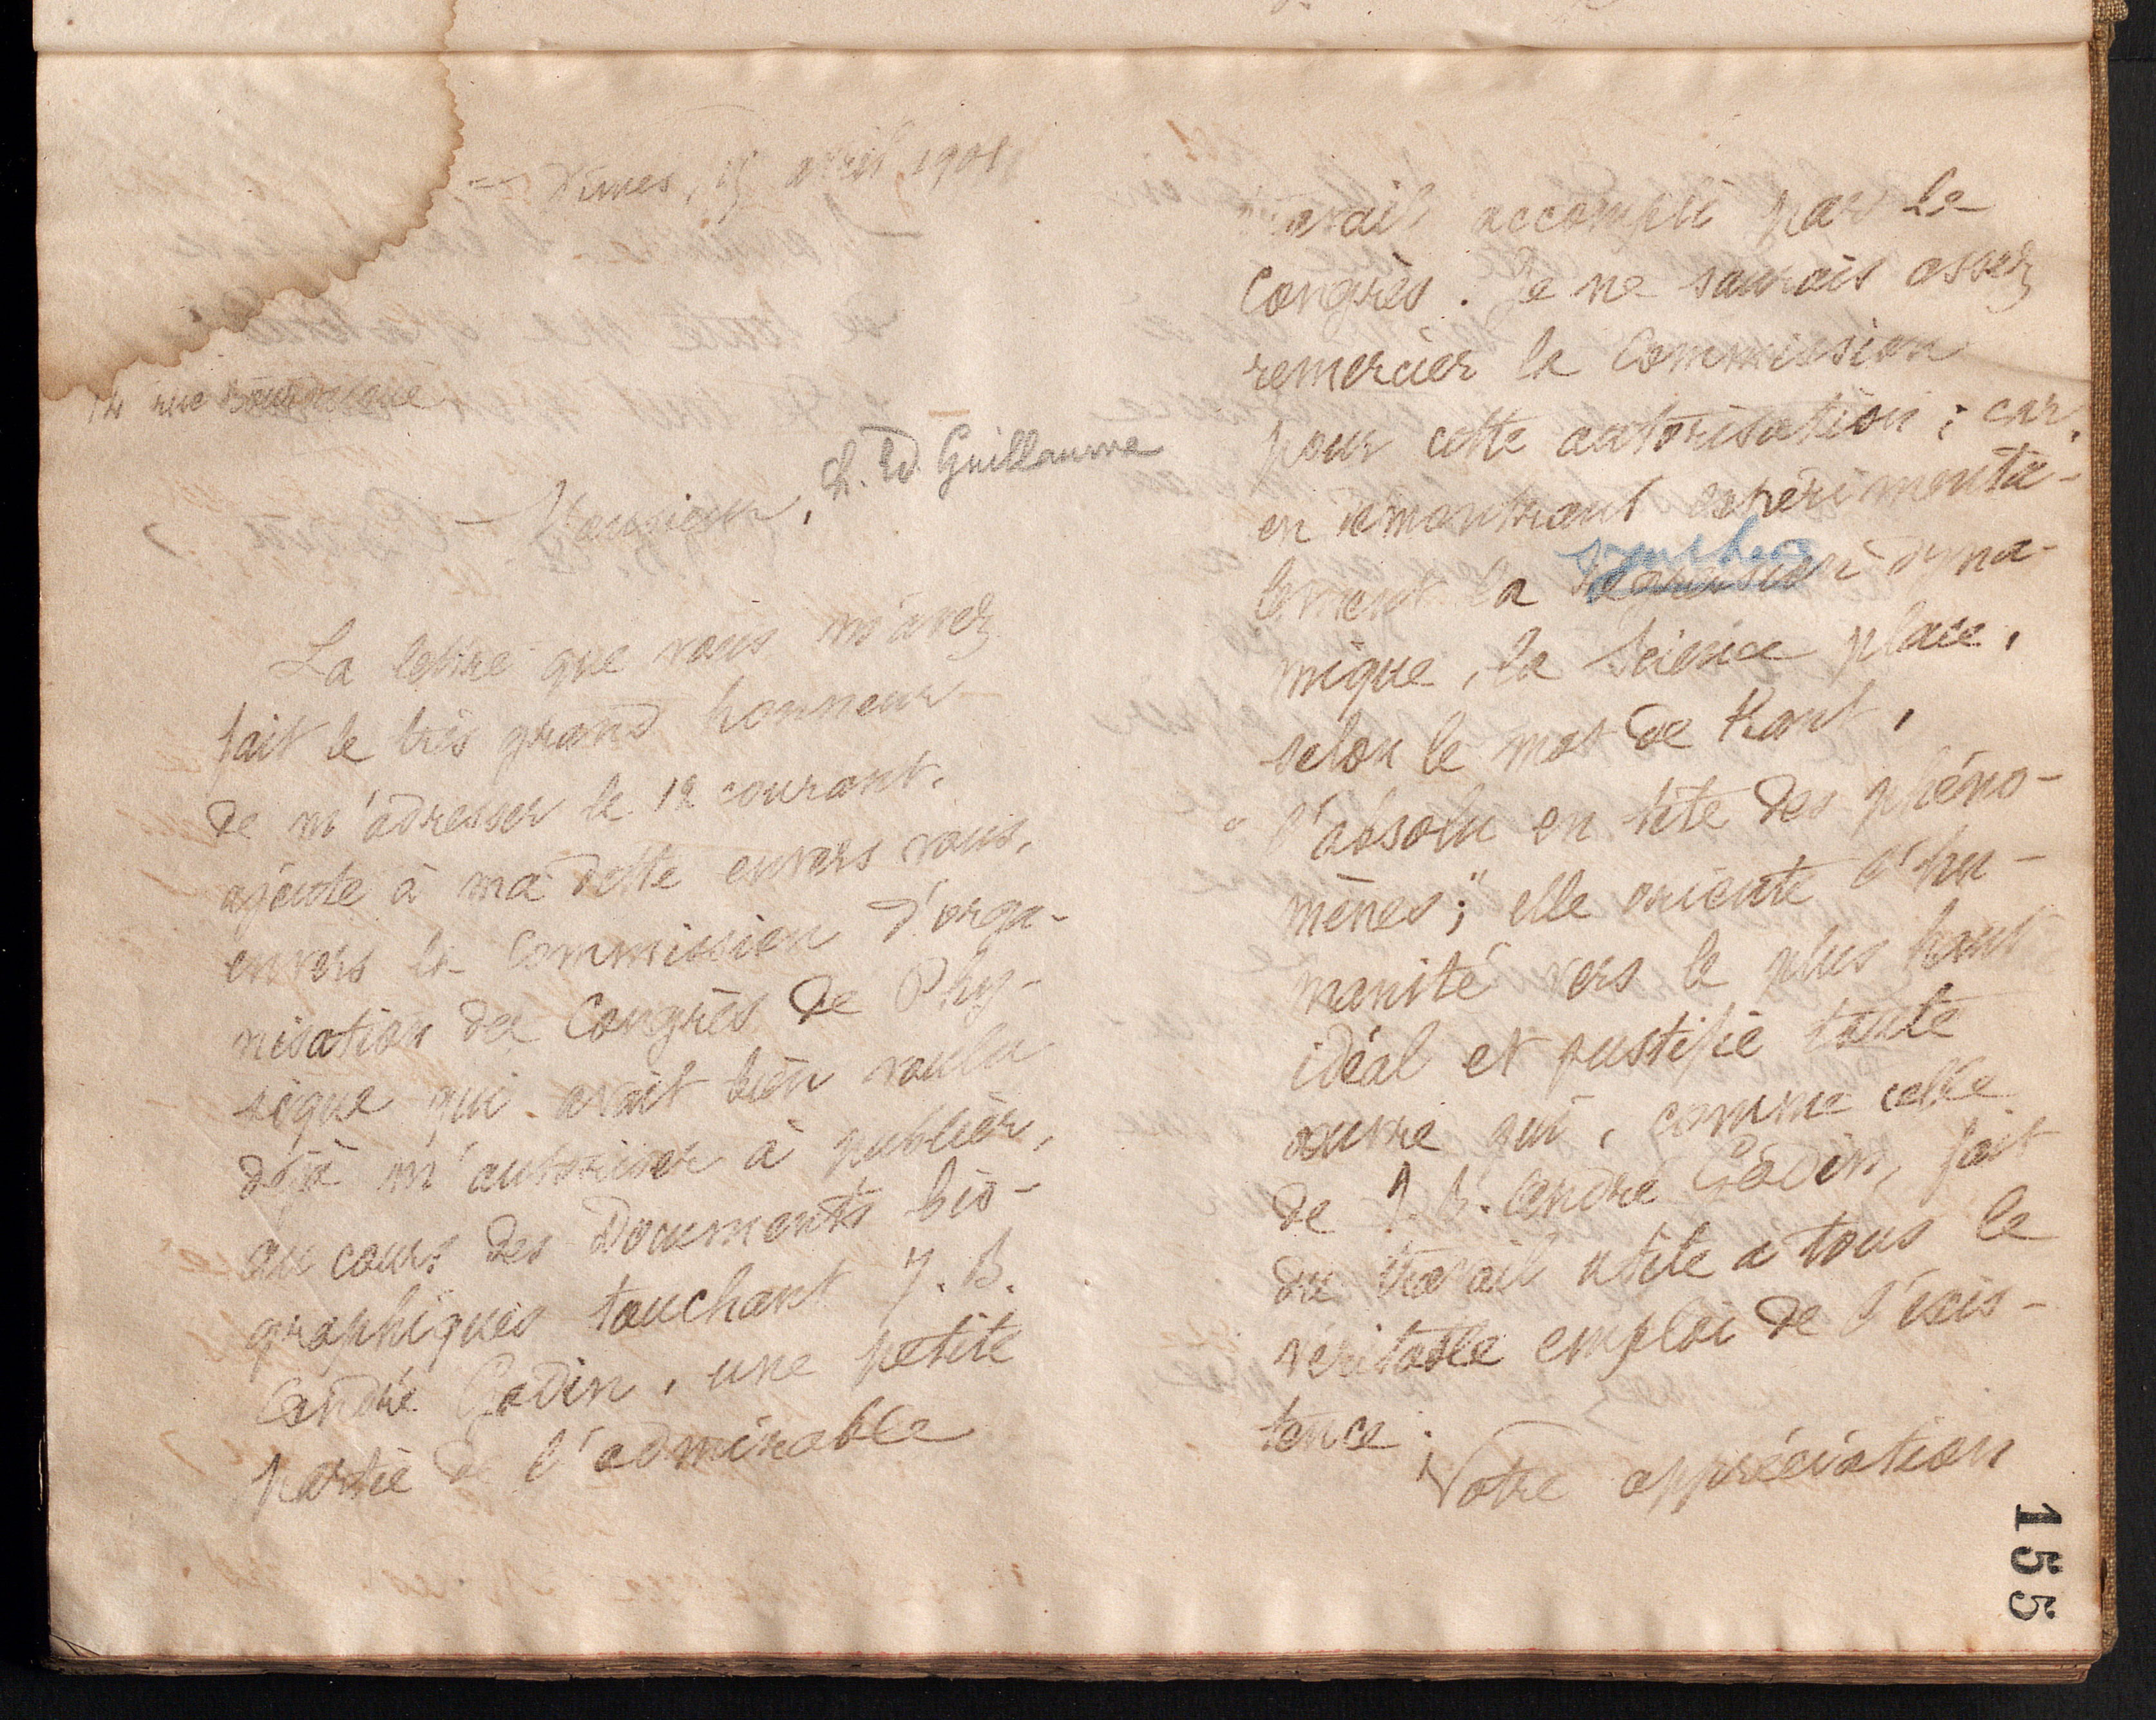 Nimes, 15 avril 1901
14 rue Bourdaloue
Monsieur, Ch. Ed. Guillaume
La lettre que vous m'avez
fait le très grand honneur
de m'adresser le 12 courant,
ajoute à ma dette envers vous,
envers la Commission d'orga-
nisation du Congrès de Phy-
sique qui avait bien voulu
déjà m'autoriser à publier,
au cours des Documents bio-
graphiques touchant J. B.
André Godin, une petite
partie de l'admirable
travail accompli par le
Congrès. Je ne saurais assez
remercier la Commission
pour cette autorisation ; car,
en démontrant expérimenta-
lement la synthèse dyna-
mique, la Science place,
selon le mot de Kant,
"l'absolu en tête des phéno-
mènes ;" elle oriente l'hu-
manité vers le plus haut
idéal et justifie toute
œuvre qui, comme celle
de J. B. André Godin, fait
du travail utile à tous le
véritable emploi de l'exis-
tence.
Votre appréciation
155